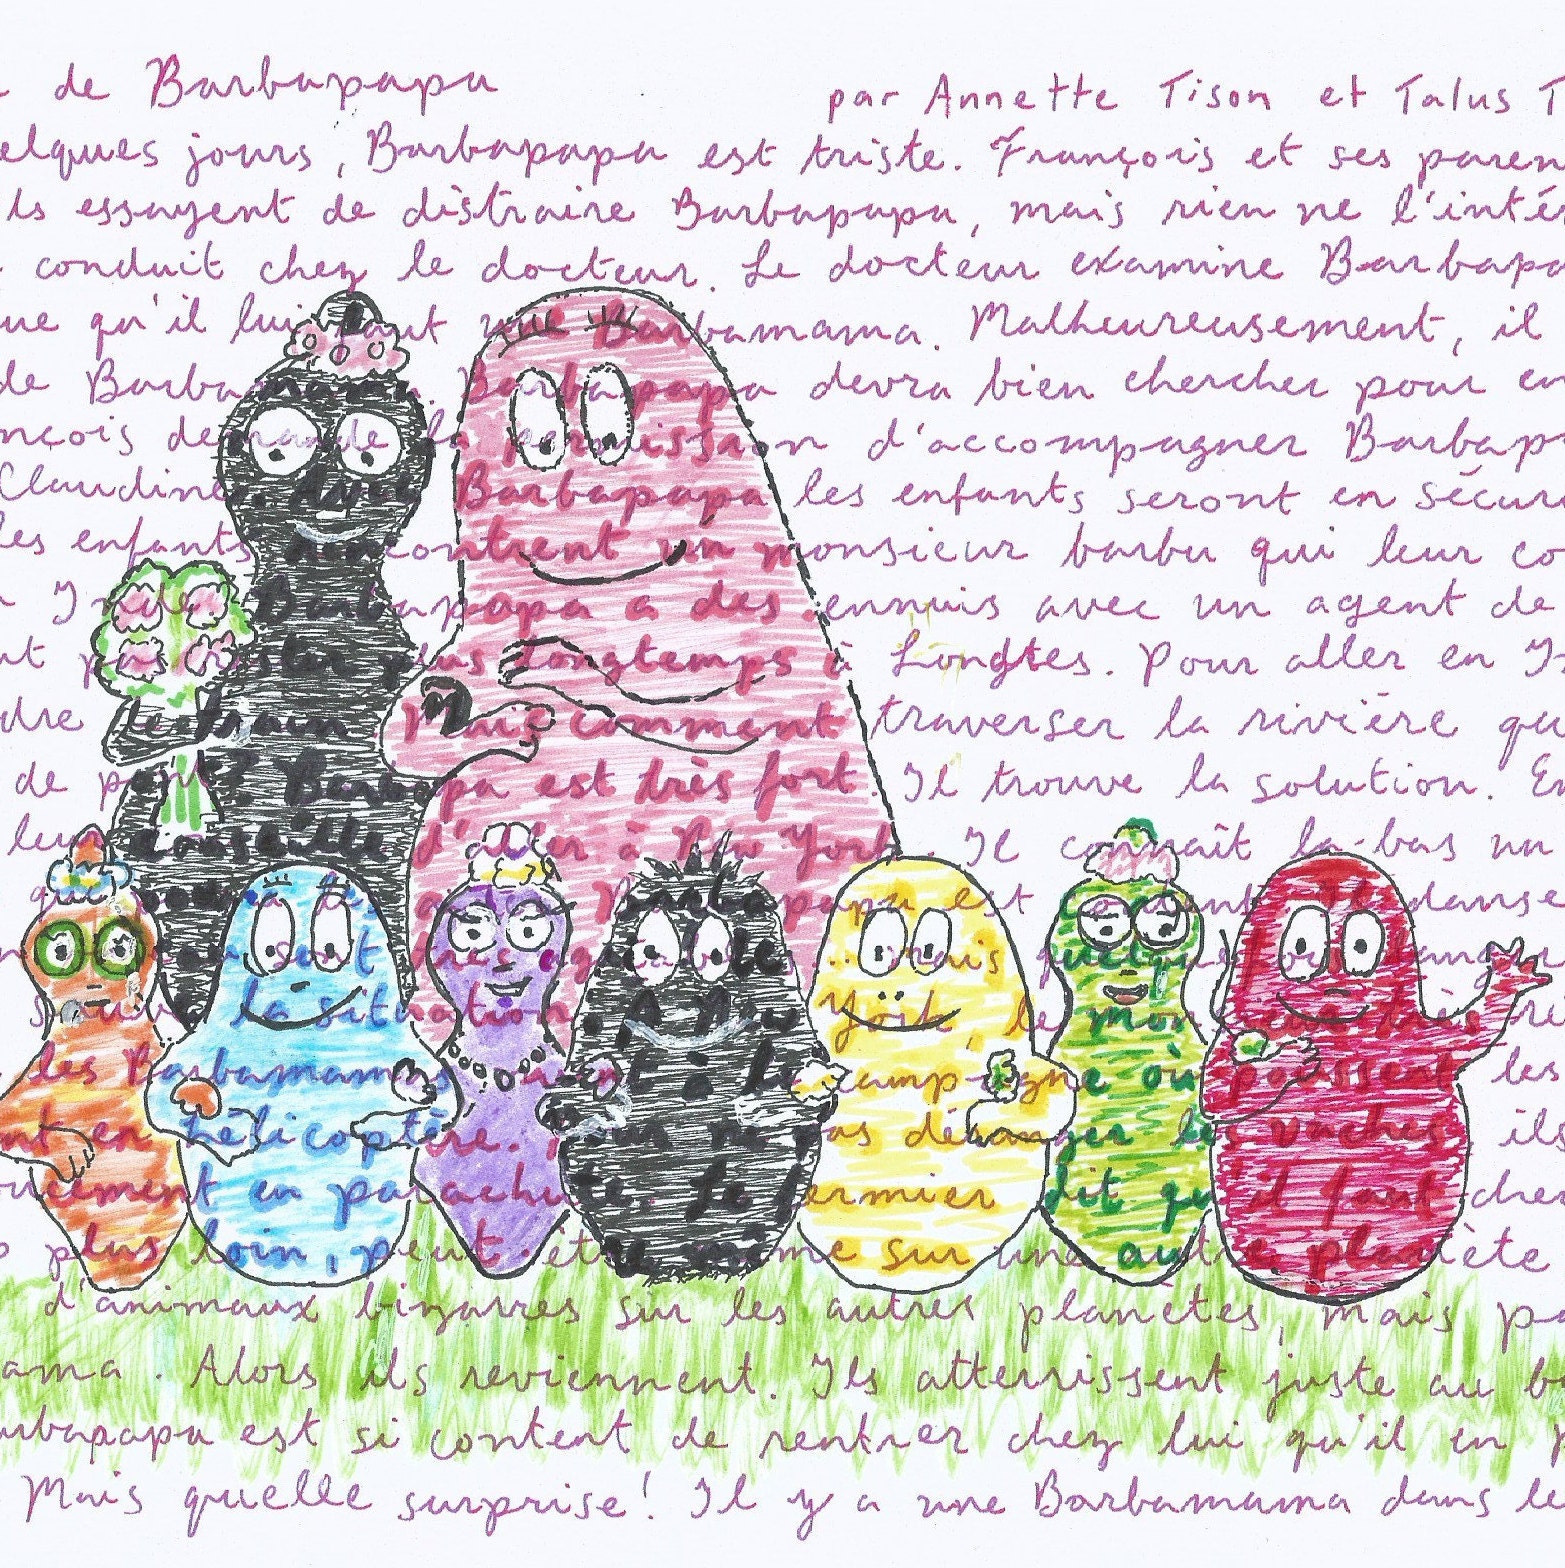 de Barbapapa par Annette Tison et Talus T
elques jours, Barbapapa est triste. François et ses paren
ls essayent de distraire Barbapapa, mais rien ne l'inté
conduit chez le docteur. Le docteur examine Barbapa
ue qu'il lui faut une Barbamama. Malheureusement, il
de Barbamama. Barbapapa devra bien chercher pour en
nçois demande la permission d'accompagner Barbap
Claudine. Avec Barbapapa les enfants seront en sécur
les enfants rencontrent un monsieur barbu qui leur co
Barbapapa a des ennuis avec un agent de
nt pas plus longtemps à Londres. Pour aller en I
dre le train. Mais comment traverser la rivière qu
de pont ? Barbapapa est très fort. Il trouve la solution. En
leur conseille d'aller à New York. Il connaît la-bas un
Barbapapa est danse
sont très agréables... mais quelque
sauve la situation. A New York, le
les Barbamamas campagne où poussent les
nt en hélicoptère. pas déranger les vaches, ils
oucement en parachute. Le fermier dit qu'il faut cher
plus loin, peut-être même sur une autre planète
d'animaux bizarres sur les autres planètes, mais pa
ama. Alors ils reviennent. Ils atterrissent juste au b
arbapapa est si content de rentrer chez lui qu'il en p
Mais quelle surprise! Il y a une Barbamama dans le